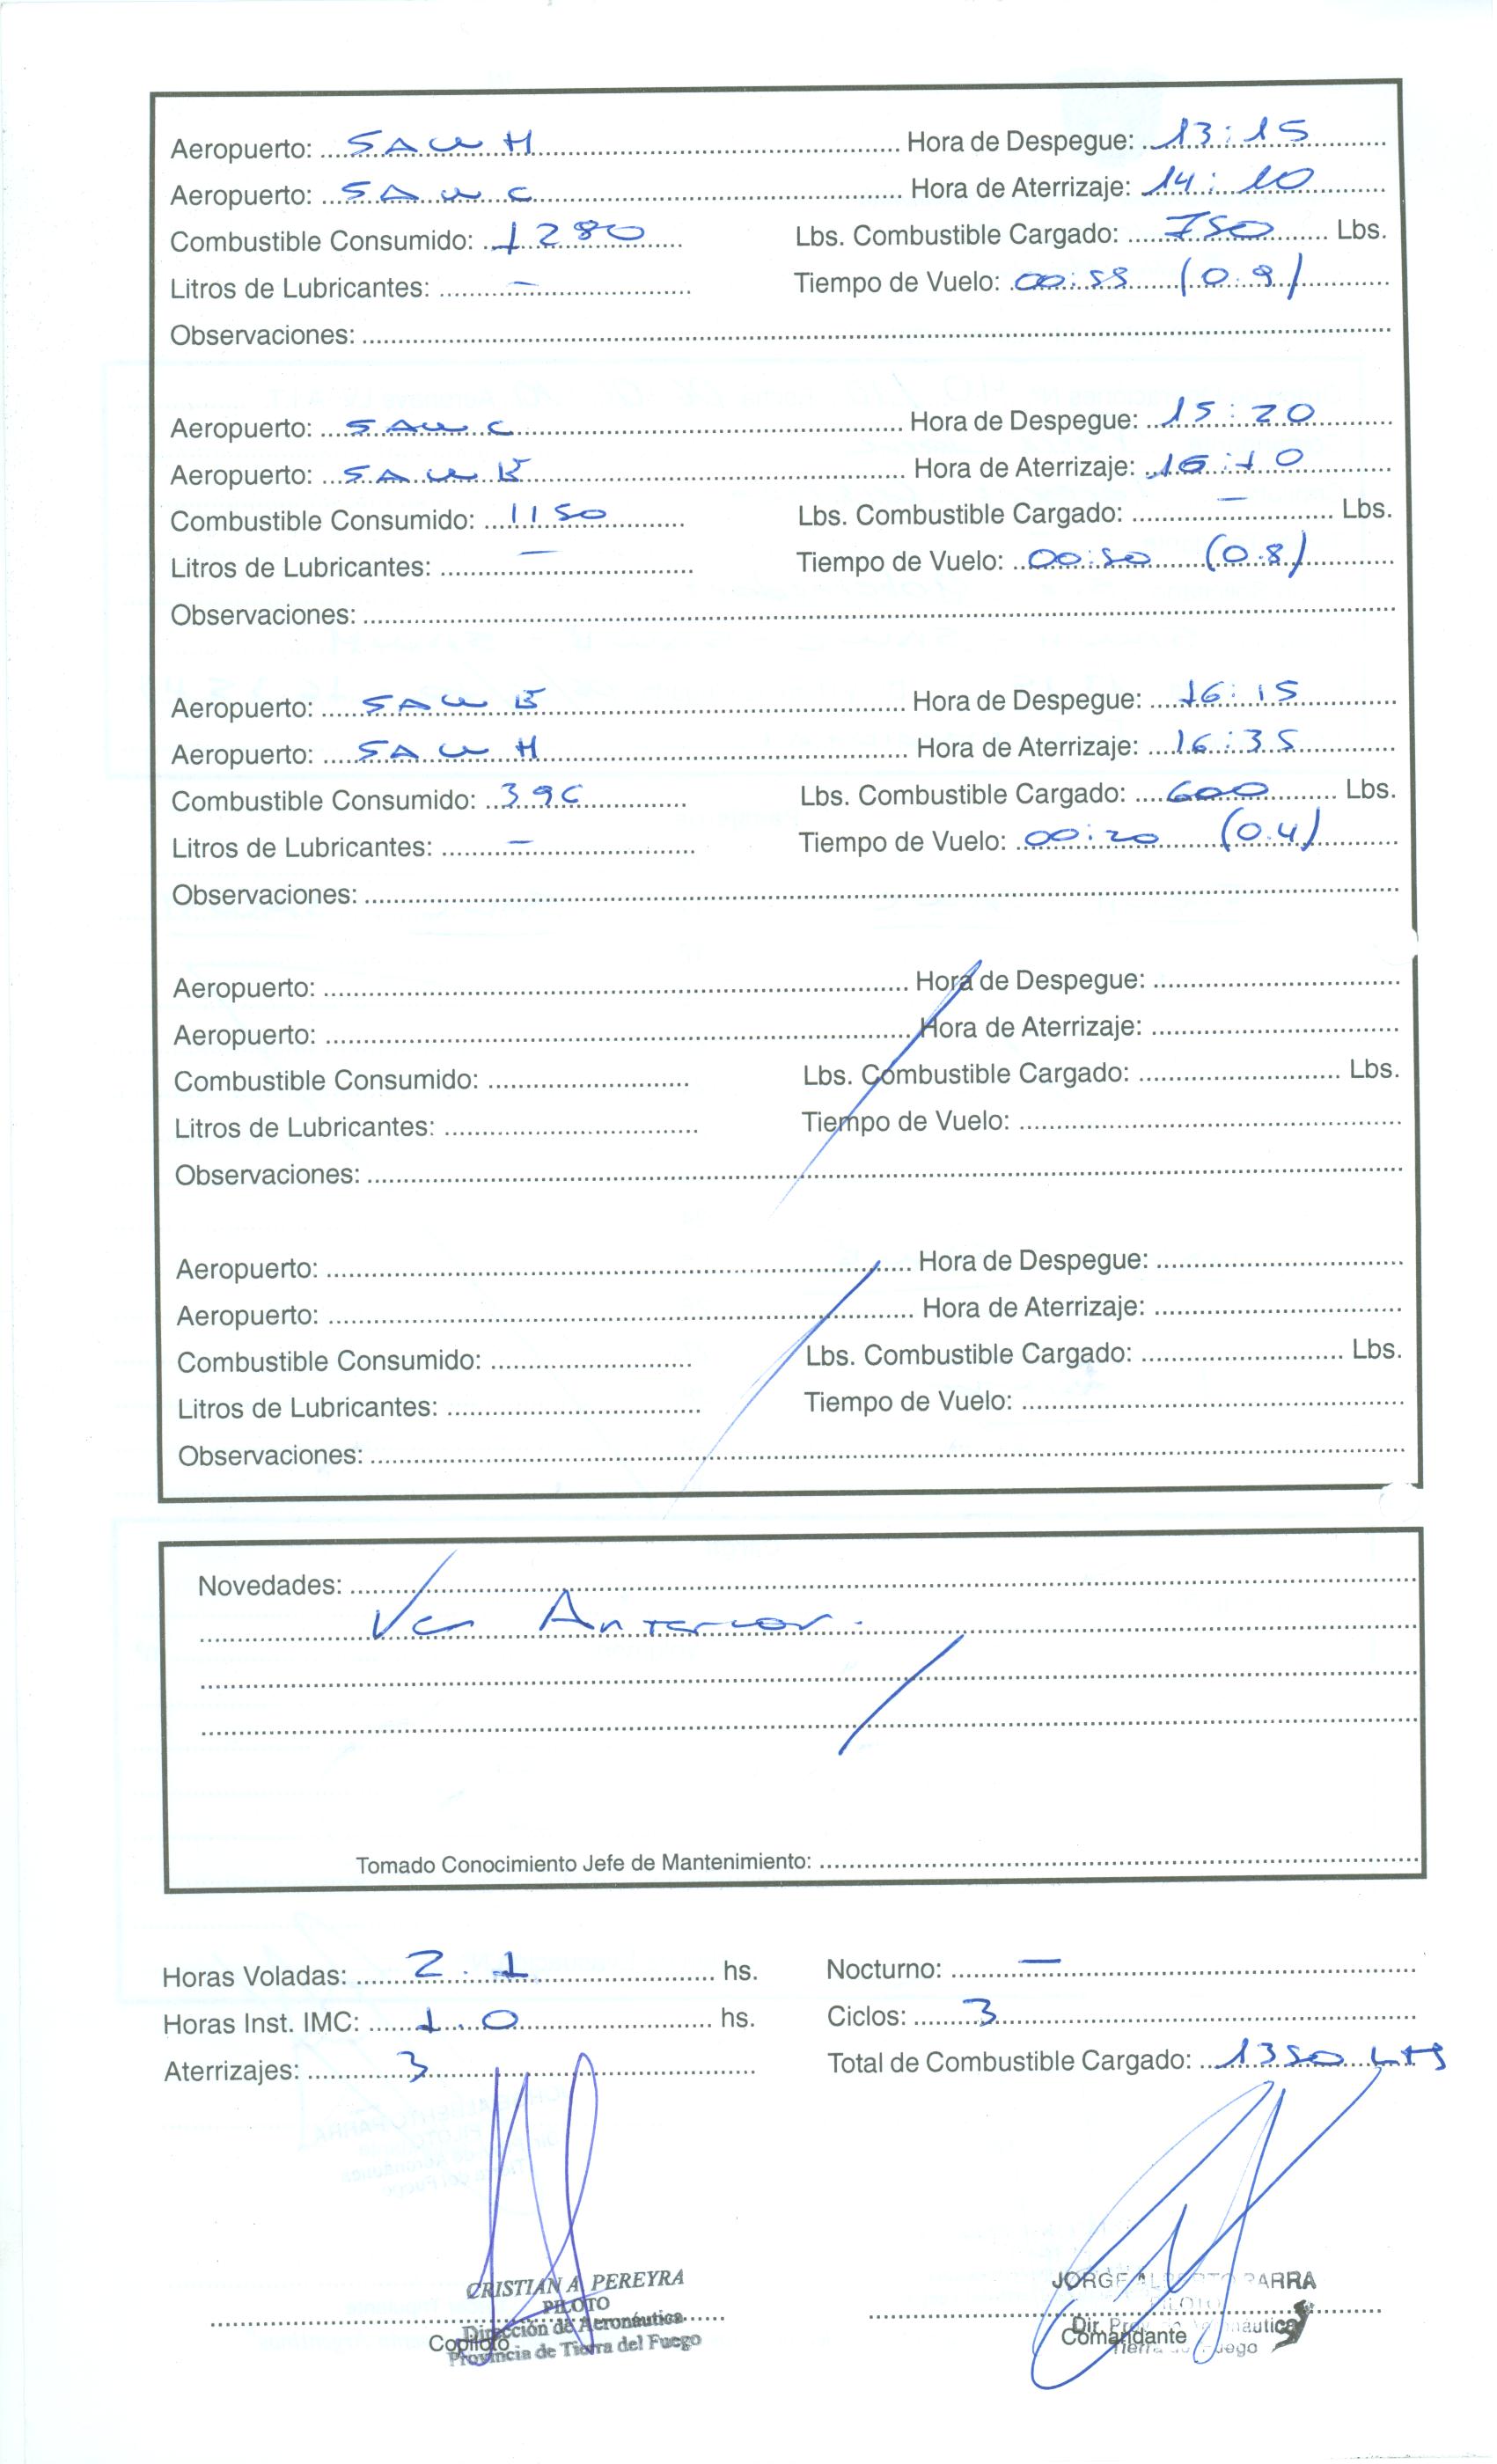 Aeropuerto: SAWH Hora de Despegue: 13:15
Aeropuerto: SAWC Hora de Aterrizaje: 14:10
Combustible Consumido: 1280 Lbs. Combustible Cargado: 750 Lbs.
Litros de Lubricantes: - Tiempo de Vuelo: 00:55 (0.9)
Observaciones:
Aeropuerto: SAWC Hora de Despegue: 15:20
Aeropuerto: SAWB Hora de Aterrizaje: 16:10
Combustible Consumido: 1150 Lbs. Combustible Cargado: - Lbs.
Litros de Lubricantes: - Tiempo de Vuelo: 00:50 (0.8)
Observaciones:
Aeropuerto: SAWB Hora de Despegue: 16:15
Aeropuerto: SAWH Hora de Aterrizaje: 16:35
Combustible Consumido: Lbs. Combustible Cargado: 600 Lbs.
Litros de Lubricantes: - Tiempo de Vuelo: 00:20 (0.4)
Observaciones:
Aeropuerto: Hora de Despegue:
Aeropuerto: Hora de Aterrizaje:
Combustible Consumido: Lbs. Combustible Cargado: Lbs.
Litros de Lubricantes: Tiempo de Vuelo:
Observaciones:
Aeropuerto: Hora de Despegue:
Aeropuerto: Hora de Aterrizaje:
Combustible Consumido: Lbs. Combustible Cargado: Lbs.
Litros de Lubricantes: Tiempo de Vuelo:
Observaciones:
Novedades:
Ver Anterior.
Tomado Conocimiento Jefe de Mantenimiento:
Horas Voladas: 2.1 hs. Nocturno: -
Horas Inst. IMC: 1.0 hs. Ciclos: 3
Aterrizajes: 3 Total de Combustible Cargado: 1350
CRISTIAN A. PEREYRA
PILOTO
Dirección de Aeronáutica
Copiloto
Provincia de Tierra del Fuego
JORGE ALBERTO PARRA
PILOTO
Comandante